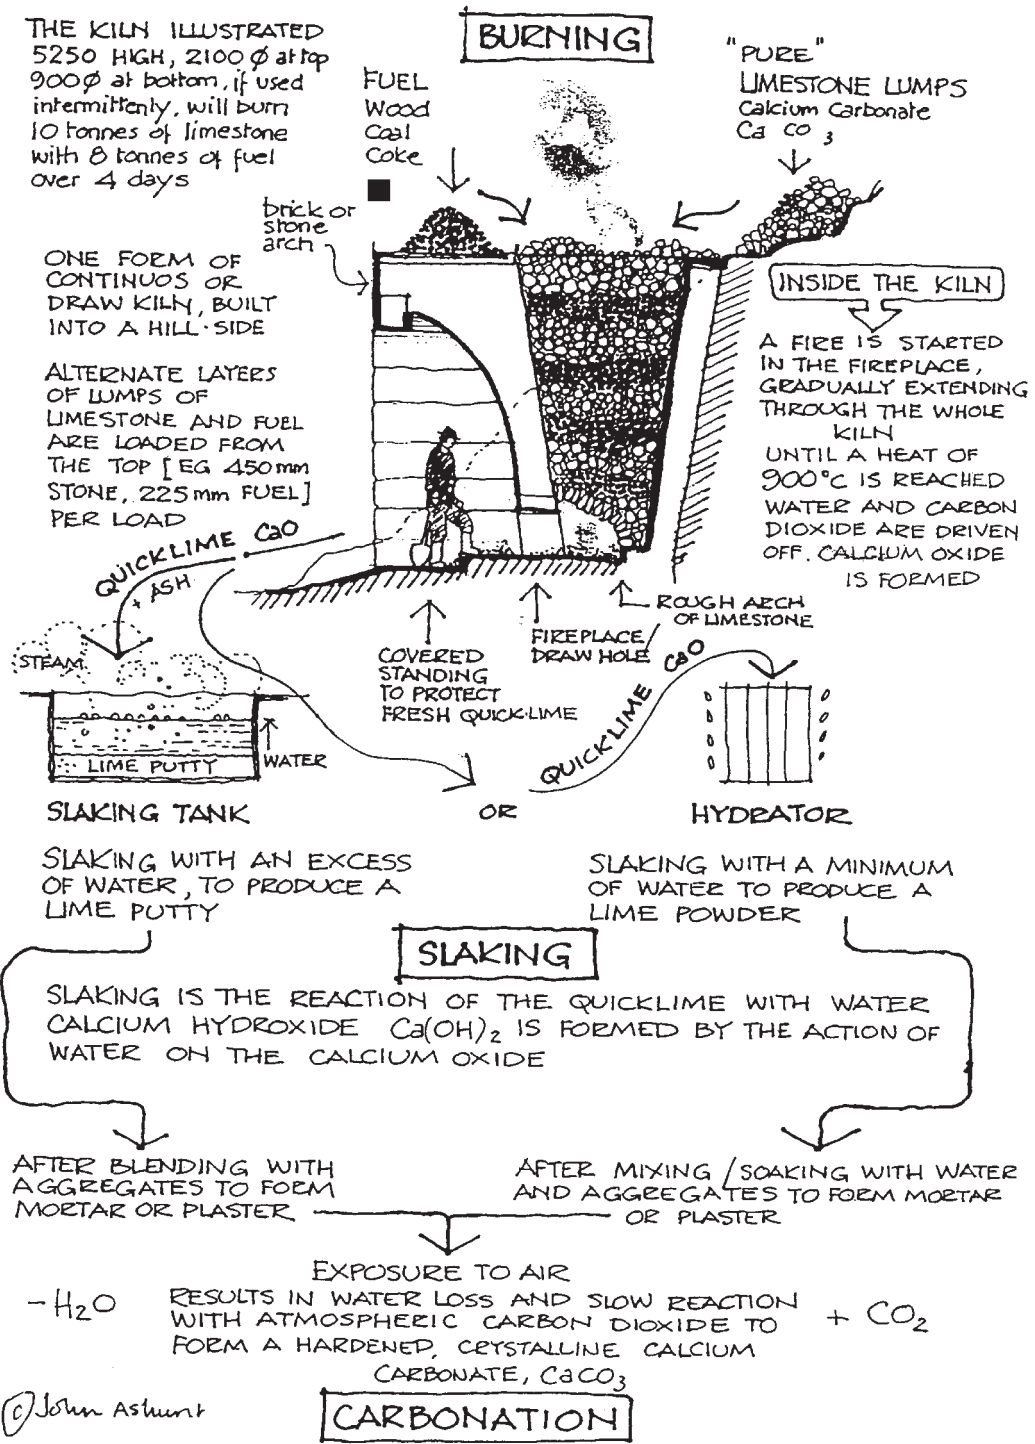 BURNING
THE KILN ILLUSTRATED
5250 HIGH, 2100 Ø at top
900Ø at bottom, if used
intermittenly, will burn
10 tonnes of limestone
with 8 tonnes of fuel
over 4 days
FUEL
Wood
Coal
Coke
"PURE"
LIMESTONE LUMPS
Calcium Carbonate
Ca CO3
brick or
stone
arch
ONE FORM OF
CONTINUOS OR
DRAW KILN, BUILT
INTO A HILL-SIDE
ALTERNATE LAYERS
OF LUMPS OF
LIMESTONE AND FUEL
ARE LOADED FROM
THE TOP [EG 450mm
STONE, 225mm FUEL]
PER LOAD
INSIDE THE KILN
A FIRE IS STARTED
IN THE FIREPLACE,
GRADUALLY EXTENDING
THROUGH THE WHOLE
KILN
UNTIL A HEAT OF
900°C IS REACHED
WATER AND CARBON
DIOXIDE ARE DRIVEN
OFF. CALCIUM OXIDE
IS FORMED
QUICKLIME CaO
+ ASH
ROUGH ARCH
OF LIMESTONE
FIREPLACE
DRAW HOLE
COVERED
STANDING
TO PROTECT
FRESH QUICK-LIME
STEAM
WATER
LIME PUTTY
QUICKLIME CaO
SLAKING TANK
OR
HYDRATOR
SLAKING WITH AN EXCESS
OF WATER, TO PRODUCE A
LIME PUTTY
SLAKING WITH A MINIMUM
OF WATER TO PRODUCE A
LIME POWDER
SLAKING
SLAKING IS THE REACTION OF THE QUICKLIME WITH WATER
CALCIUM HYDROXIDE Ca(OH)2 IS FORMED BY THE ACTION OF
WATER ON THE CALCIUM OXIDE
AFTER BLENDING WITH
AGGREGATES TO FORM
MORTAR OR PLASTER
AFTER MIXING/SOAKING WITH WATER
AND AGGREGATES TO FORM MORTAR
OR PLASTER
EXPOSURE TO AIR
RESULTS IN WATER LOSS AND SLOW REACTION
WITH ATMOSPHERIC CARBON DIOXIDE TO
FORM A HARDENED, CRYSTALLINE CALCIUM
CARBONATE, CaCO3
-H2O
+ CO2
© John Ashurst
CARBONATION